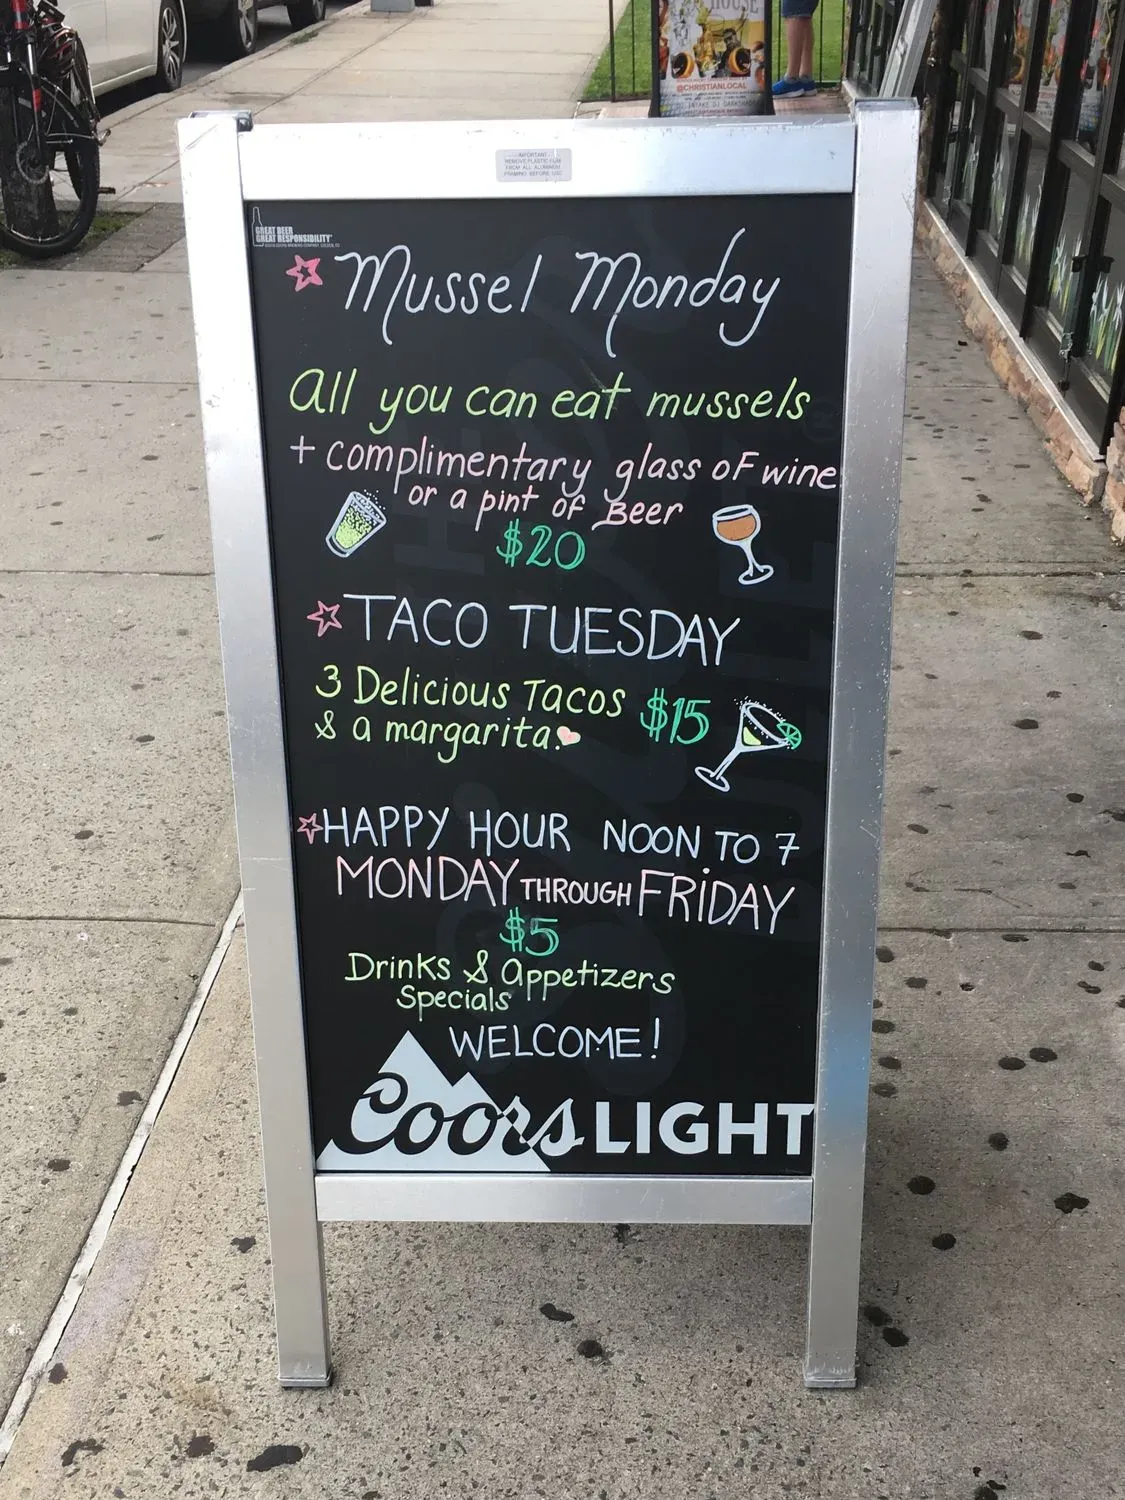 HOUSE
@CHRISTIANLOCAL
IMPORTANT
REMOVE PLASTIC FILM
FROM ALL ALUMINUM
FRAMING BEFORE USE
GREAT BEER
GREAT RESPONSIBILITY
Mussel Monday
all you can eat mussels
+ complimentary glass of wine
or a pint of Beer
$20
TACO TUESDAY
3 Delicious Tacos
& a margarita.
$15
HAPPY HOUR NOON TO 7
MONDAY THROUGH FRIDAY
$5
Drinks & Appetizers
Specials
WELCOME!
Coors LIGHT